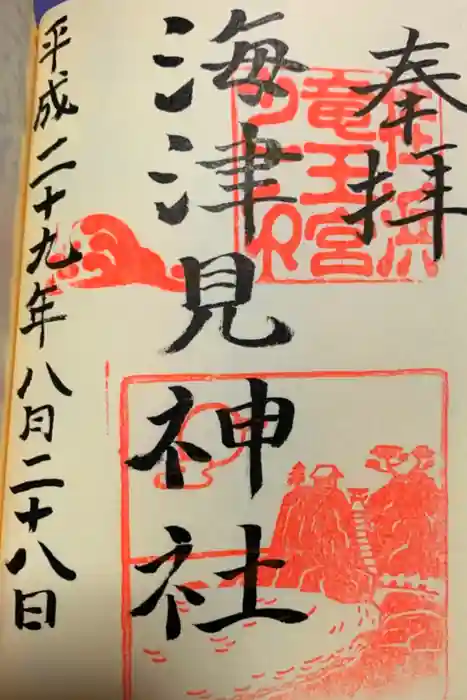 奉拝
海津見神社
平成二十九年八月二十八日
龍王宮